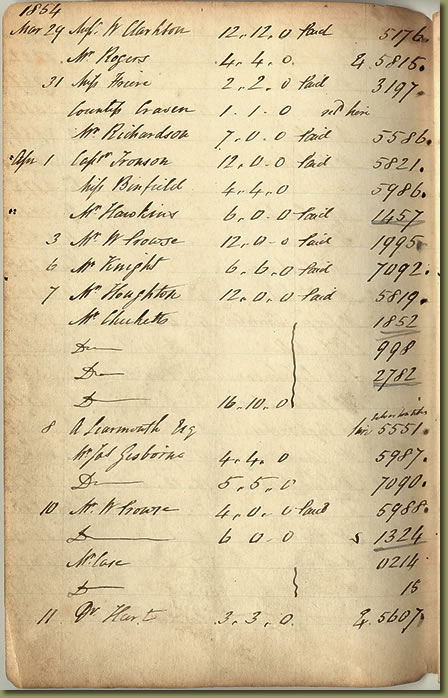 1854
Mar 29 Miss W Clarkson 12.. 12.. 0 Paid 5176.
Mr Rogers 4.. 4.. 0. & 5815.
31 Miss Friere 2.. 2.. 0 Paid 3197.
Countess Craven 1 - 1 - 0
Mr Richardson 7.. 0 - 0 Paid 5586.
Apr 1 Captn Ironson 12.. 0 - 0 Paid 5821.
Miss Binfield 4.. 4.. 0 5986.
Mr Hawkins 6.. 0 - 0 Paid 1457
3 Mr W Prowse 12.. 0 - 0 Paid 1995.
6 Mr Knight 6.. 6.. 0 Paid 7092.
7 Mr Houghton 12.. 0.. 0 Paid 5819.
Mr Chicketts 1852
Do 998
Do 2782
Do 16.. 10.. 0
8 A Learmonth Esq 5551.
Mr Jas Gisborne 4.. 4.. 0 5987.
Do 5.. 5.. 0 7090.
10 Mr W Prowse 4.. 0.. 0 Paid 5988.
Do 6 - 0 - 0 s 1324
Mr Case 0214
Do 15
11 Dr Hart 3.. 3.. 0. & 5607.